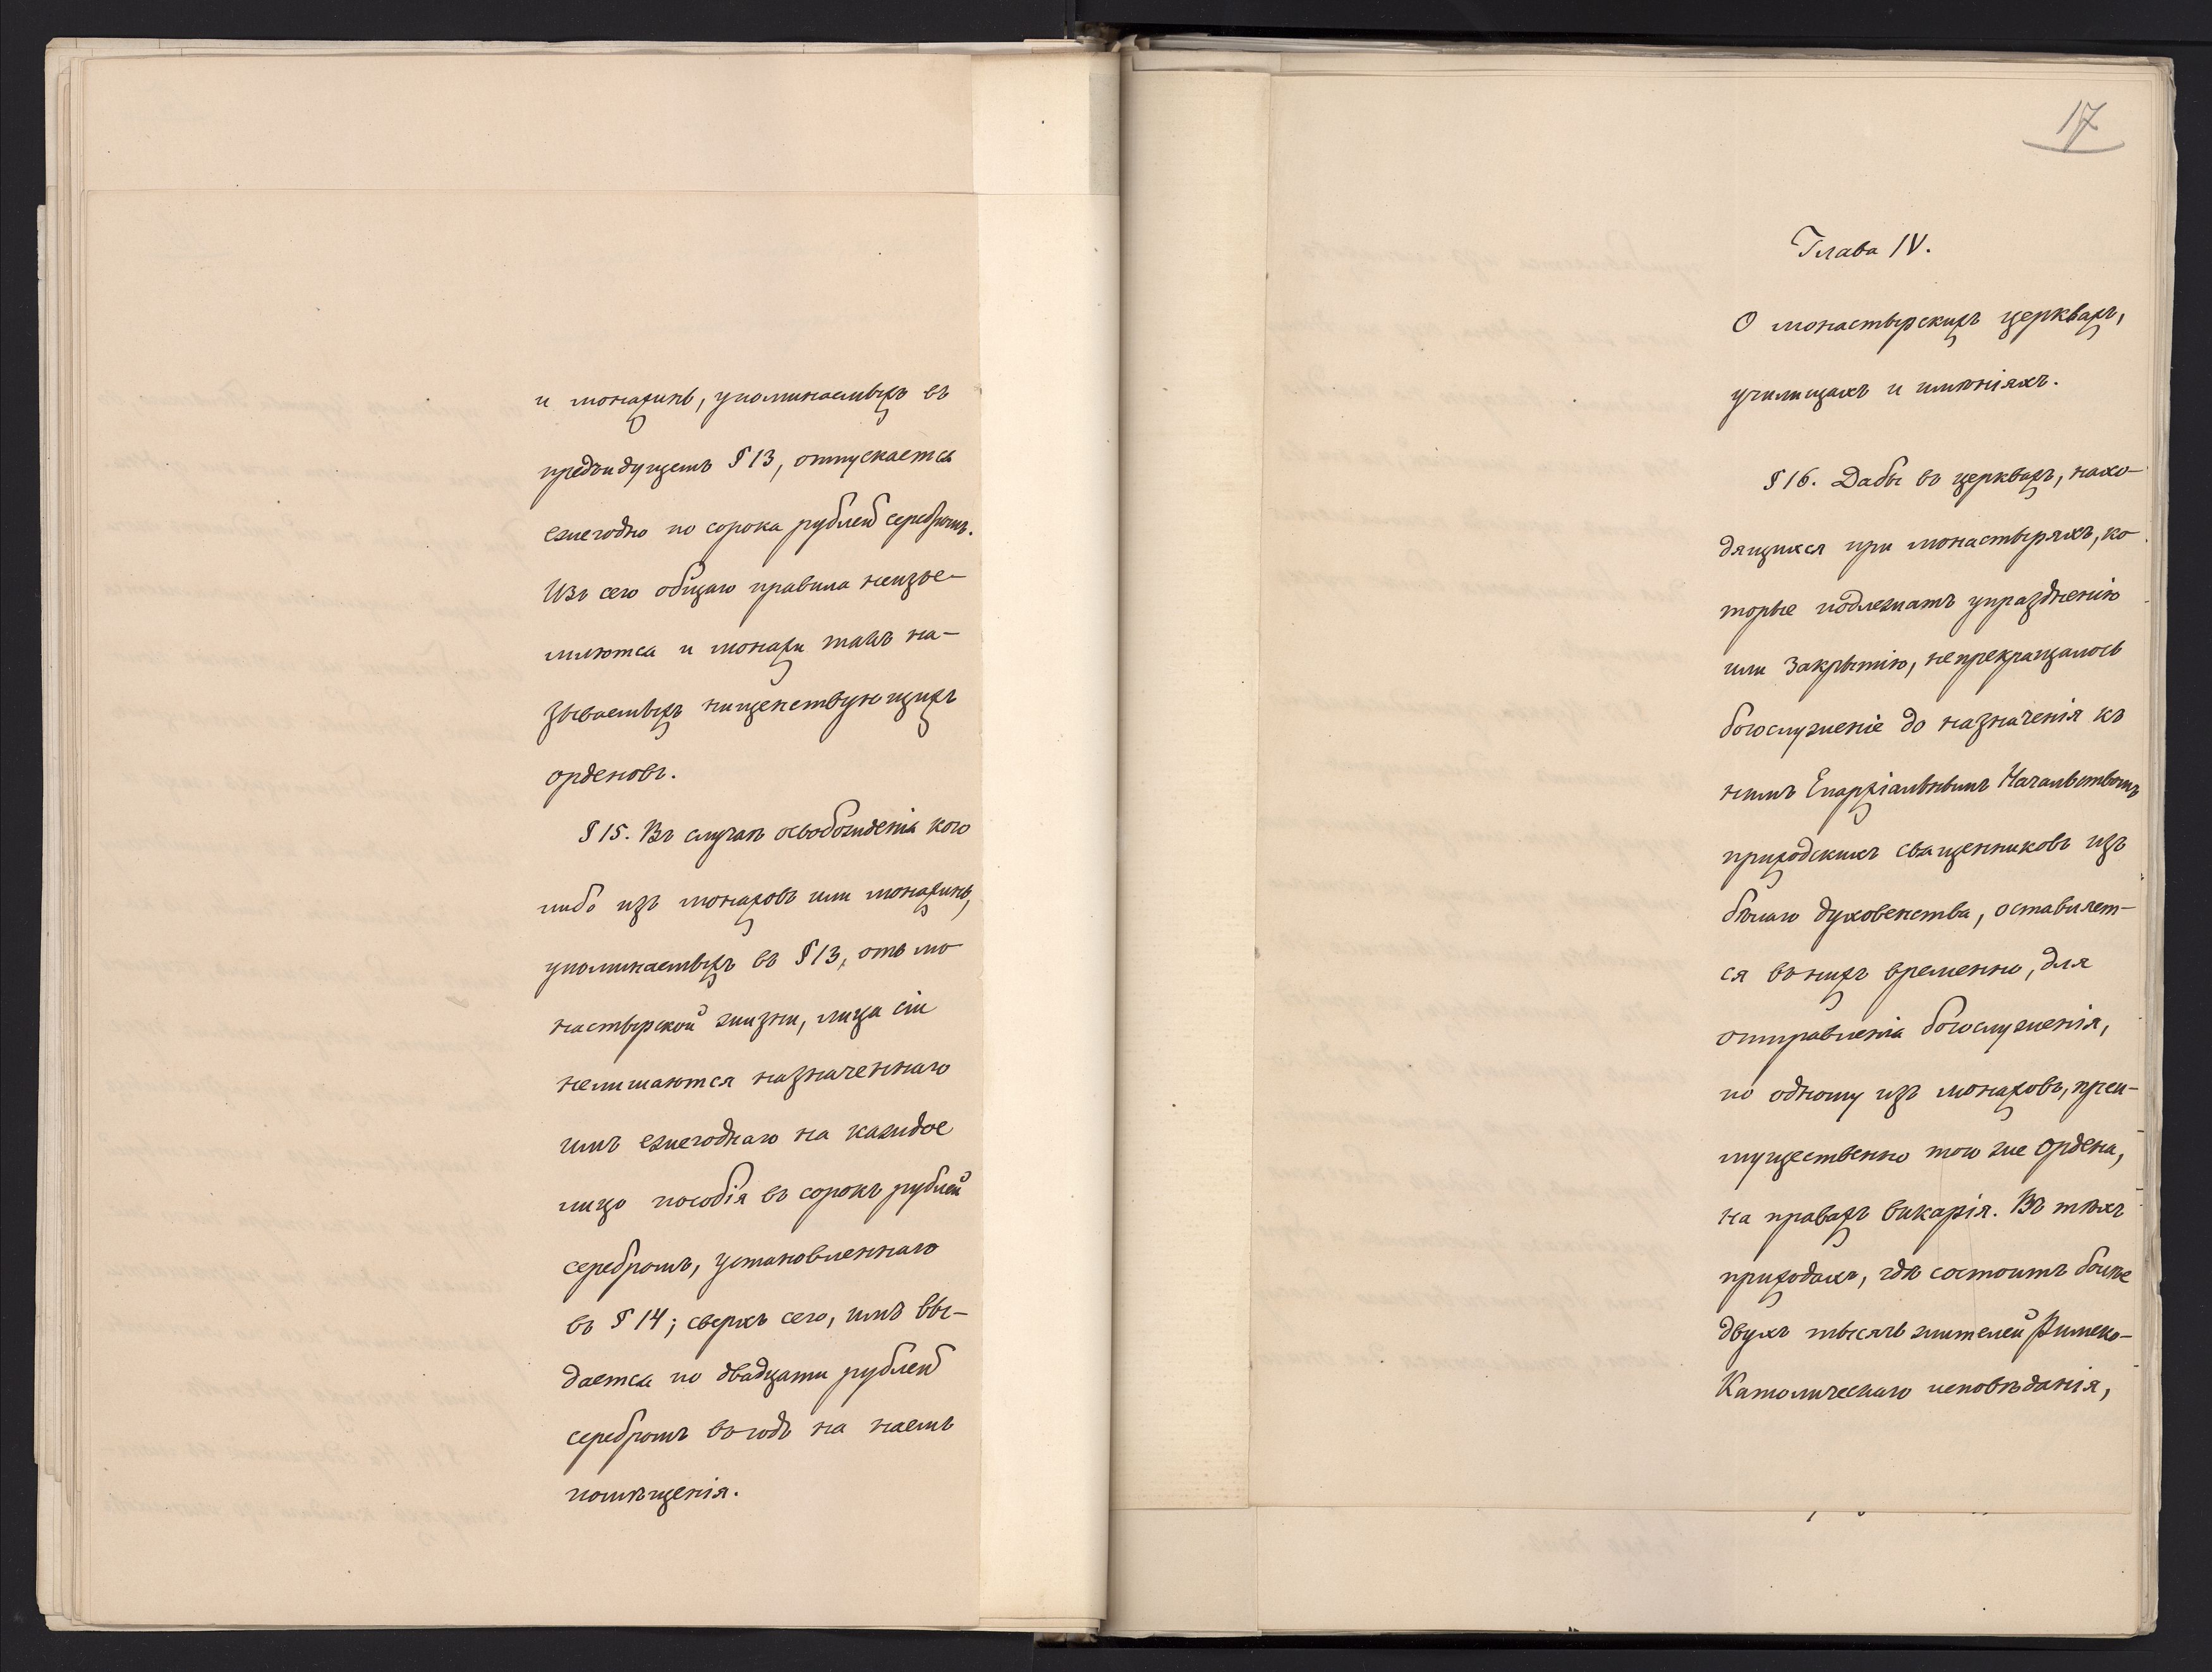 и монахинь, упоминаемыхъ въ
предъидущемъ § 13, отпускается
ежегодно по сорока рублей серебромъ.
Изъ сего общаго правила неизъе-
млются и монахи такъ на-
зываемыхъ нищенствующихъ
орденовъ.
§ 15. Въ случаѣ освобожденія кого
либо изъ монаховъ или монахинь,
упоминаемыхъ въ § 13, отъ мо
настырской жизни, лица сіи
нелишаются назначеннаго
имъ ежегоднаго на каждое
лицо пособія въ сорокъ рублей
серебромъ, установленнаго
въ § 14; сверхъ сего, имъ вы-
дается по двадцати рублей
серебромъ въ годъ на наемъ
помѣщенія.
17
Глава IV.
О монастырскихъ церквахъ,
училищахъ и имѣніяхъ.
§ 16. Дабы въ церквахъ, нахо-
дящихся при монастыряхъ, ко
торые подлежатъ упраздненію
или закрытію, непрекращалось
богослуженіе до назначенія къ
нимъ Епархіальнымъ Начальствомъ
приходскихъ священниковъ изъ
бѣлаго духовенства, оставляет-
ся въ нихъ временно, для
отправленія богослуженія,
по одному изъ монаховъ, преи-
мущественно того же Ордена,
на правахъ викарія. Въ тѣхъ
приходахъ, гдѣ состоитъ болѣе
двухъ тысячъ жителей Римско-
Католическаго исповѣданія,